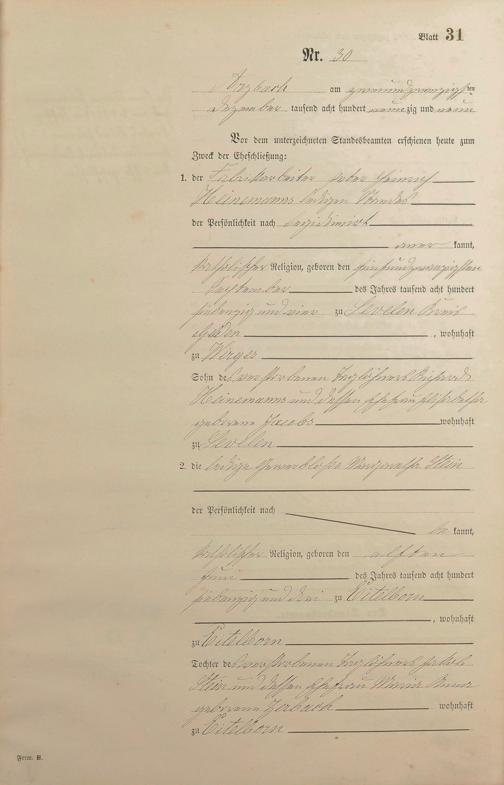 Blatt 31
Nr. 30
Arzbach am zweiundzwanzigsten
Dezember tausend acht hundert neunzig und neun
Vor dem unterzeichneten Standesbeamten erschienen heute zum
Zweck der Eheschließung:
1. der Fabrikarbeiter Heinrich
Heinemanns ledigen Standes
der Persönlichkeit nach legitimirt
kannt,
katholischer Religion, geboren den fünfundzwanzigsten
September des Jahrs tausend acht hundert
siebenzig und vier zu Sevelen Kreis
Geldern, wohnhaft
zu Wirges
Sohn des verstorbenen Taglöhners
Heinemanns und dessen Ehefrau
geborene Jacobs wohnhaft
zu Sevelen
2. die ledige gewerblose Margaretha Stein
der Persönlichkeit nach
bekannt,
katholischer Religion, geboren den elften
Juni des Jahrs tausend acht hundert
siebenzig und drei zu Eitelborn
, wohnhaft
zu Eitelborn
Tochter des verstorbenen Taglöhners Jakob
Stein und dessen Ehefrau Maria Anna
geborene wohnhaft
zu Eitelborn
Form. B.